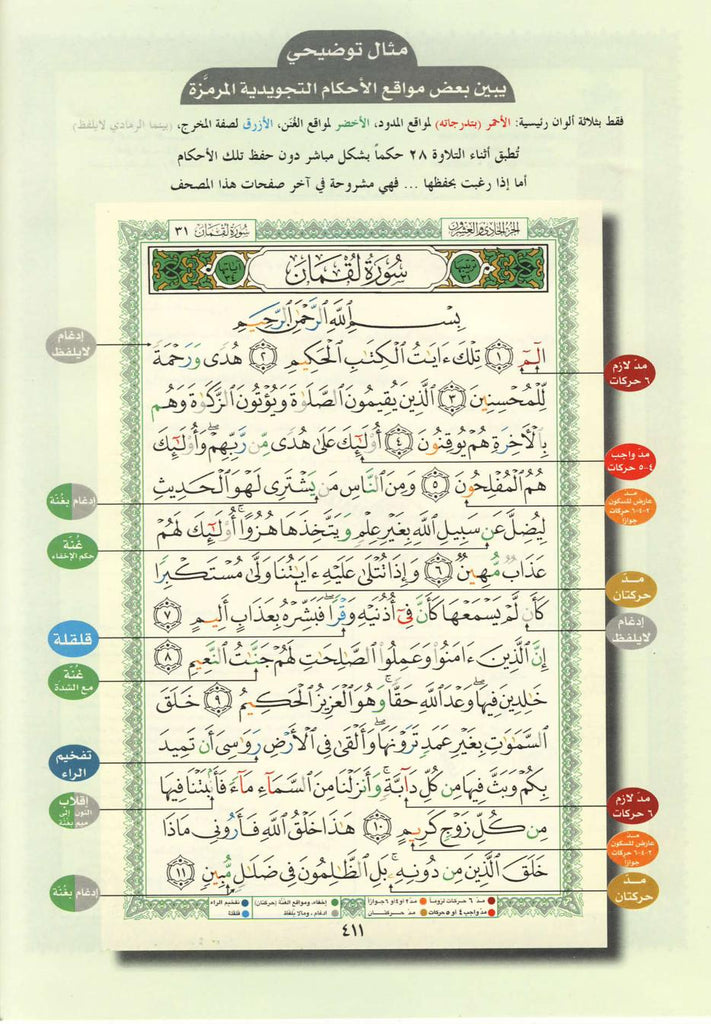 مثال توضيحي
يبين بعض مواقع الأحكام التجويدية المرمَّزة
فقط بثلاثة ألوان رئيسية: الأحمر (بتدرجاته) لمواقع المدود، الأخضر لمواقع الغُنَن، الأزرق لصفة المخرج، (بينما الرمادي لايلفظ)
تُطبق أثناء التلاوة ٢٨ حكماً بشكل مباشر دون حفظ تلك الأحكام
أما إذا رغبت بحفظها ... فهي مشروحة في آخر صفحات هذا المصحف
الجزء الحادي والعشرون
سورة لقمان ٣١
ترتيبها ٣١
سُورَةُ لُقْمَانَ
آياتها ٣٤
بِسْمِ ٱللَّهِ ٱلرَّحْمَٰنِ ٱلرَّحِيمِ
الٓمٓ ١ تِلْكَ ءَايَٰتُ ٱلْكِتَٰبِ ٱلْحَكِيمِ ٢ هُدًى وَرَحْمَةً
لِّلْمُحْسِنِينَ ٣ ٱلَّذِينَ يُقِيمُونَ ٱلصَّلَوٰةَ وَيُؤْتُونَ ٱلزَّكَوٰةَ وَهُم
بِٱلْأَخِرَةِ هُمْ يُوقِنُونَ ٤ أُو۟لَٰٓئِكَ عَلَىٰ هُدًى مِّن رَّبِّهِمْ وَأُو۟لَٰٓئِكَ
هُمُ ٱلْمُفْلِحُونَ ٥ وَمِنَ ٱلنَّاسِ مَن يَشْتَرِى لَهْوَ ٱلْحَدِيثِ
لِيُضِلَّ عَن سَبِيلِ ٱللَّهِ بِغَيْرِ عِلْمٍ وَيَتَّخِذَهَا هُزُوًا أُو۟لَٰٓئِكَ لَهُمْ
عَذَابٌ مُّهِينٌ ٦ وَإِذَا تُتْلَىٰ عَلَيْهِ ءَايَٰتُنَا وَلَّىٰ مُسْتَكْبِرًا
كَأَن لَّمْ يَسْمَعْهَا كَأَنَّ فِىٓ أُذُنَيْهِ وَقْرًا فَبَشِّرْهُ بِعَذَابٍ أَلِيمٍ ٧
إِنَّ ٱلَّذِينَ ءَامَنُوا۟ وَعَمِلُوا۟ ٱلصَّٰلِحَٰتِ لَهُمْ جَنَّٰتُ ٱلنَّعِيمِ ٨
خَٰلِدِينَ فِيهَا وَعْدَ ٱللَّهِ حَقًّا وَهُوَ ٱلْعَزِيزُ ٱلْحَكِيمُ ٩ خَلَقَ
ٱلسَّمَٰوَٰتِ بِغَيْرِ عَمَدٍ تَرَوْنَهَا وَأَلْقَىٰ فِى ٱلْأَرْضِ رَوَٰسِىَ أَن تَمِيدَ
بِكُمْ وَبَثَّ فِيهَا مِن كُلِّ دَآبَّةٍ وَأَنزَلْنَا مِنَ ٱلسَّمَآءِ مَآءً فَأَنۢبَتْنَا فِيهَا
مِن كُلِّ زَوْجٍ كَرِيمٍ ١٠ هَٰذَا خَلْقُ ٱللَّهِ فَأَرُونِى مَاذَا
خَلَقَ ٱلَّذِينَ مِن دُونِهِۦ بَلِ ٱلظَّٰلِمُونَ فِى ضَلَٰلٍ مُّبِينٍ ١١
مدّ لازم
٦ حركات
مدّ واجب
٤-٥ حركات
مدّ
عارض للسكون
٢-٤-٦ حركات
جوازاً
مدّ
حركتان
إدغام
لايلفظ
مدّ لازم
٦ حركات
مدّ
عارض للسكون
٢-٤-٦ حركات
جوازاً
مدّ
حركتان
إدغام
لايلفظ
إدغام بغُنّة
غُنّة
حكم الإخفاء
قلقلة
غُنّة
مع الشدّة
تفخيم
الراء
إقلاب
النون إلى
ميم بغُنّة
إدغام بغُنّة
مدّ ٦ حركات لزوماً
مدّ ٢ أو ٤ أو ٦ جوازاً
إخفاء، ومواقع الغُنّة (حركتان)
تفخيم الراء
مدّ واجب ٤ أو ٥ حركات
مدّ حركتـان
إدغام، ومالا يلفظ
قلقلة
٤١١